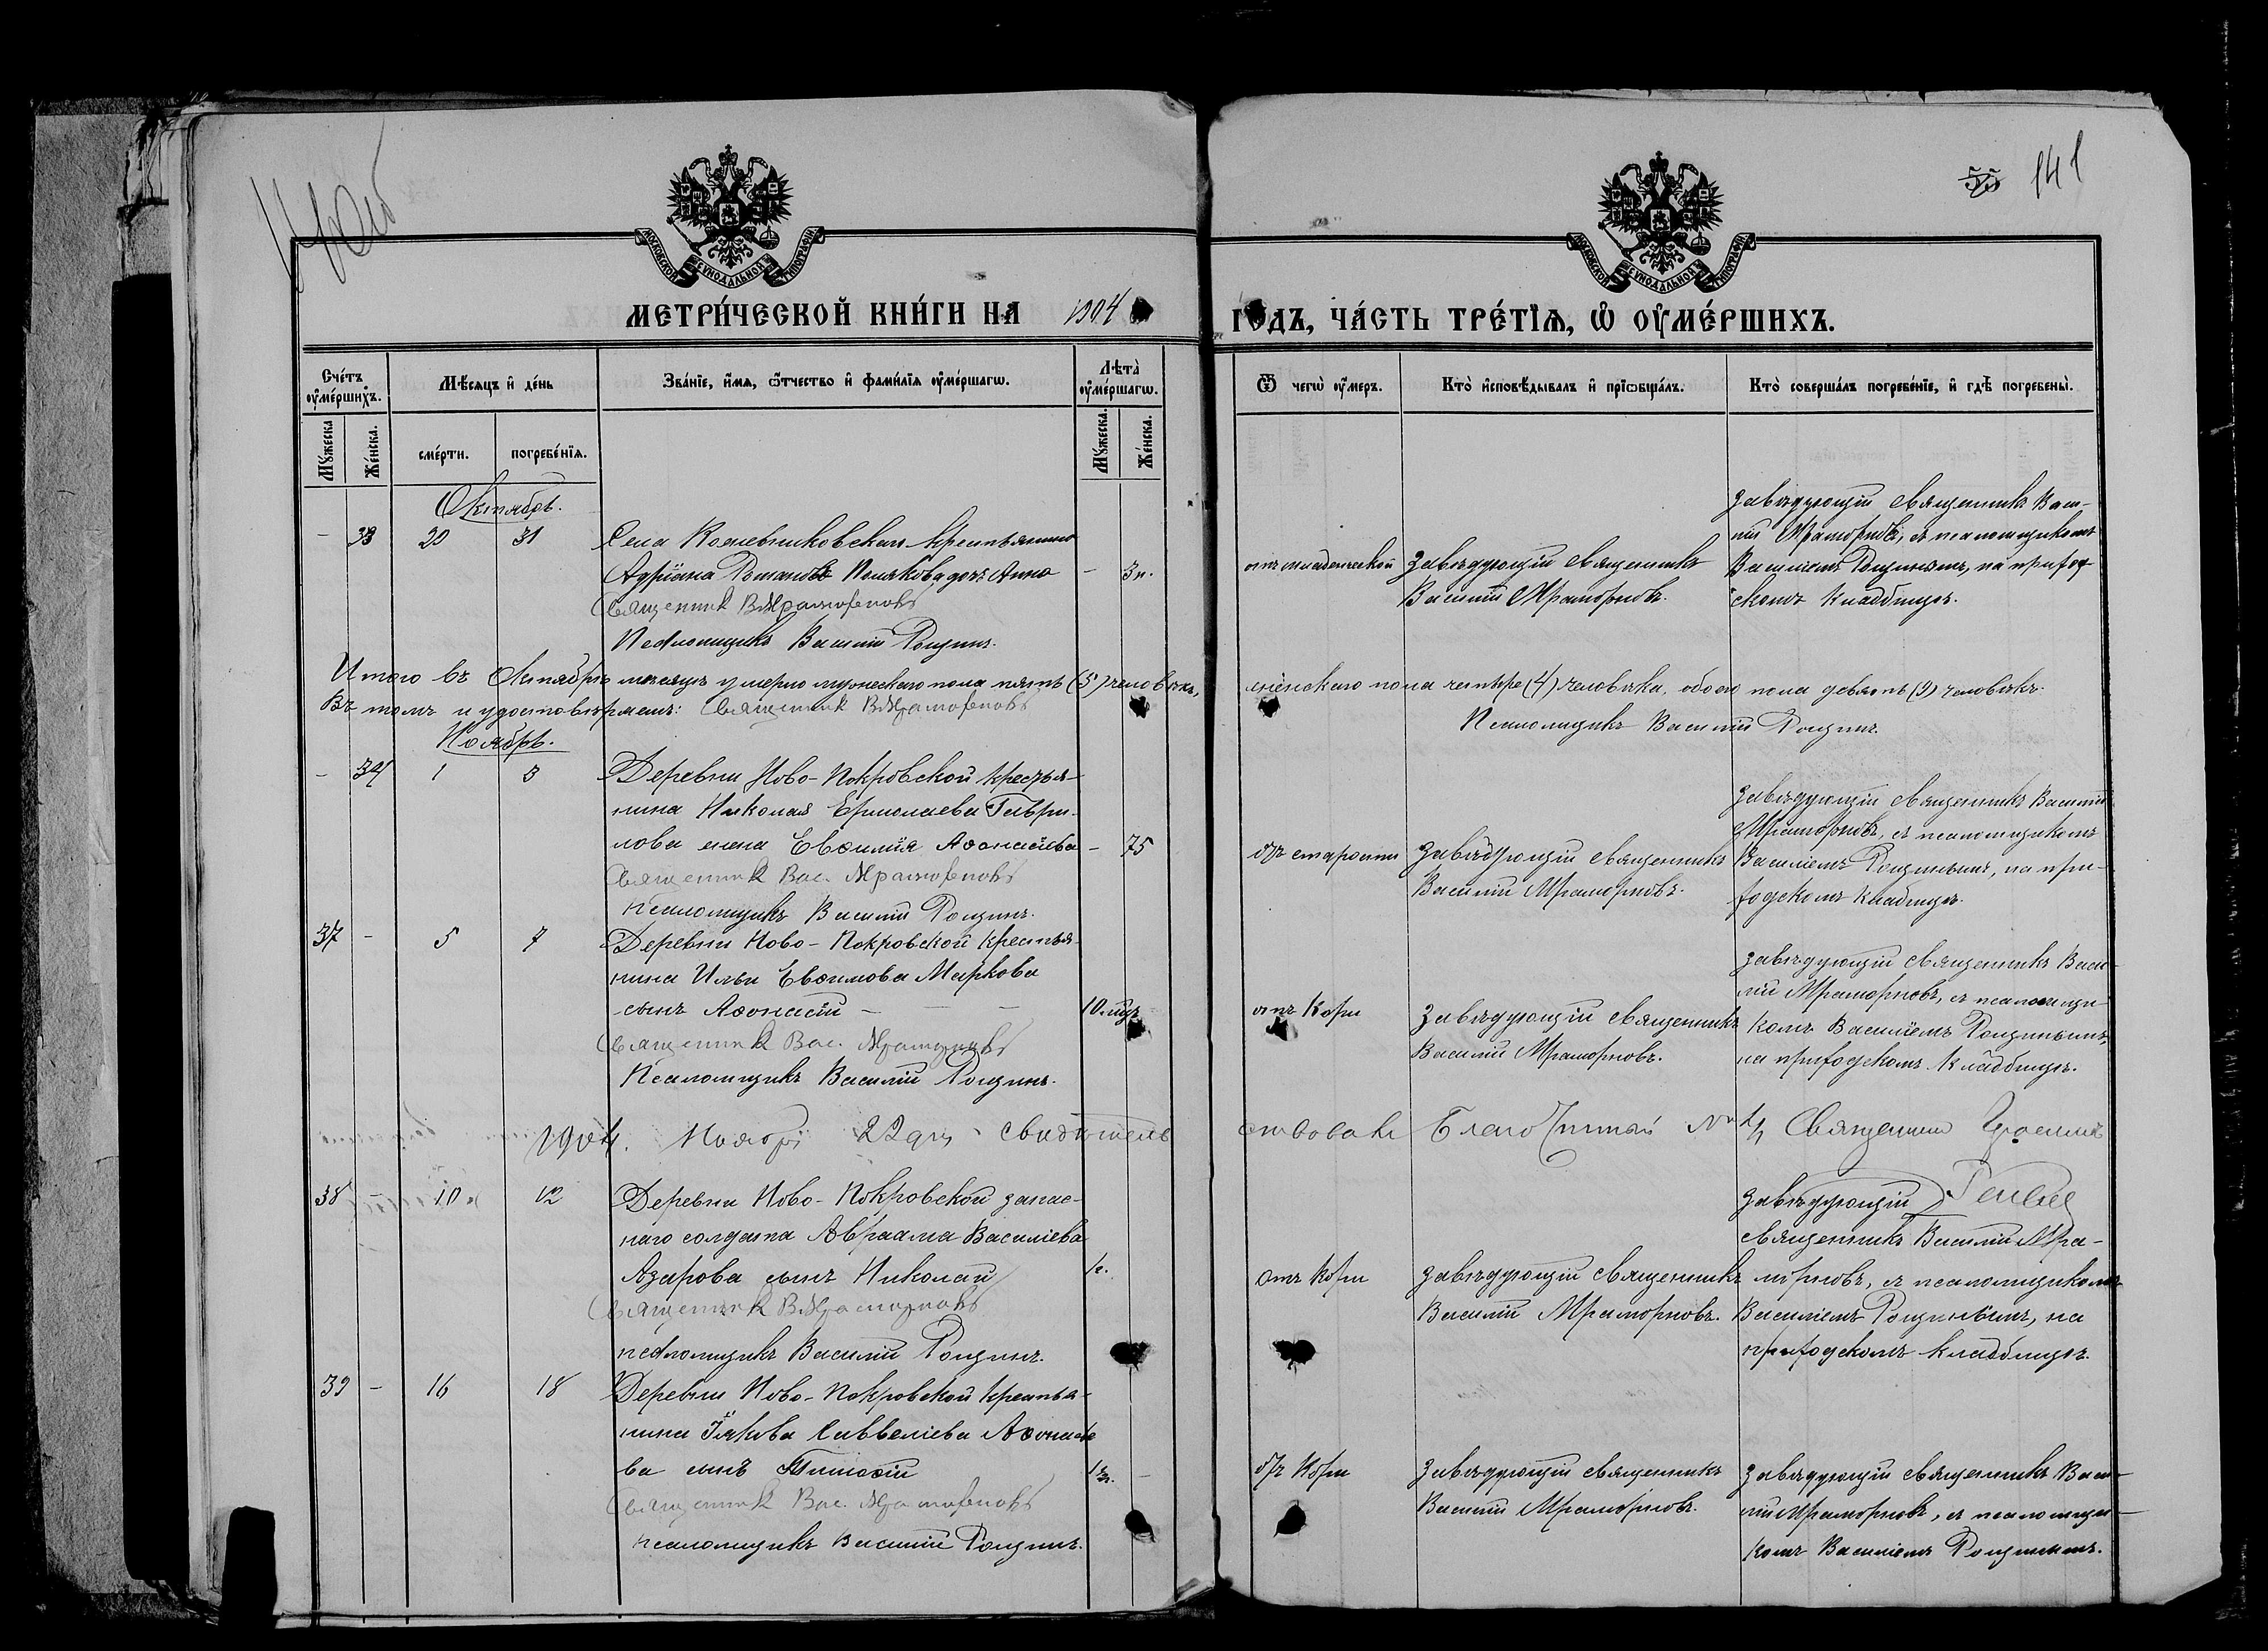 141
МОСКОВСКОЙ СУНОДАЛЬНОЙ ТИПОГРАФІИ
МОСКОВСКОЙ СУНОДАЛЬНОЙ ТИПОГРАФІИ
МЕТРИ́ЧЕСКОЙ КНИ́ГИ НА 1904 ГОДЪ, ЧА́СТЬ ТРЕ́ТІѦ, Ѡ ОУМЕ́РШИХЪ.
Сче́тъ оумє́ршихъ.
Мѣ́сяцъ и де́нь
Зва́нїе, и́мѧ, ѿчество и фами́лїѧ оуме́ршагѡ.
Лѣта̀ оуме́ршагѡ.
Ѿ чегѡ̀ оу́меръ.
Кто̀ исповѣ́дывалъ и прїѡбща́лъ.
Кто̀ соверша́лъ погребе́нїе, и гдѣ̀ погребены̀.
Му́жеска
Же́нска.
сме́рти.
погребе́нїѧ.
Му́жеска.
Же́нска.
Октябрь.
- 33 29 31 Села
крестьянина
Адріана Романова Полякова дочь Анна - 3 н.
Священникъ В Мраморновъ
Псаломщикъ Василій Рощинъ.
отъ младенческой
Завѣдующій священникъ
Василій Мраморновъ.
Завѣдующій священникъ Васи-
лій Мраморновъ, съ псаломщикомъ
Василіемъ Рощинымъ, на приход-
скомъ кладбищѣ.
Итого въ Октябрѣ мѣсяцѣ умерло мужескаго пола пять (5) человѣкъ, женскаго пола четыре (4) человѣка, обоего пола девять (9) человѣкъ.
Въ томъ и удостовѣряемъ: Священникъ В Мраморновъ
Псаломщикъ Василій Рощинъ.
Ноябрь.
- 34 1 3 Деревни Ново-Покровской крестья-
нина Николая Ермолаева Гаври-
лова жена Евѳимія Аѳонасіева - 75
Священникъ Вас. Мраморновъ
псаломщикъ Василій Рощинъ.
отъ старости
Завѣдующій священникъ
Василій Мраморновъ.
Завѣдующій священникъ Василій
Мраморновъ, съ псаломщикомъ
Василіемъ Рощинымъ, на при-
ходскомъ кладбищѣ.
37 - 5 7 Деревни Ново-Покровской крестья-
нина Ильи Евѳимова Маркова
сынъ Аѳонасій - - - 10 мцъ -
Священникъ Вас. Мраморновъ
Псаломщикъ Василій Рощинъ.
отъ Кори
Завѣдующій священникъ
Василій Мраморновъ.
Завѣдующій священникъ Васи-
лій Мраморновъ, съ псаломщи-
комъ Василіемъ Рощинымъ,
на приходскомъ кладбищѣ.
1904. Ноября 22 дня свидѣтельствовалъ Благочинный № Священникъ
38 - 10 12 Деревни Ново-Покровской запас-
наго солдата Авраама Василіева
Азарова сынъ Николай 1 г.
Священникъ В Мраморновъ
псаломщикъ Василій Рощинъ.
отъ Кори
Завѣдующій священникъ
Василій Мраморновъ.
Завѣдующій
священникъ Василій Мра-
морновъ, съ псаломщикомъ
Василіемъ Рощинымъ, на
приходскомъ кладбищѣ.
39 - 16 18 Деревни Ново-Покровской крестья-
нина Іякова Савеліева Аѳонасіе
ва сынъ Тимоѳій -
Священникъ Вас. Мраморновъ
псаломщикъ Василій Рощинъ.
отъ Кори
Завѣдующій священникъ
Василій Мраморновъ.
Завѣдующій священникъ Васи-
лій Мраморновъ, съ псаломщи-
комъ Василіемъ Рощинымъ.